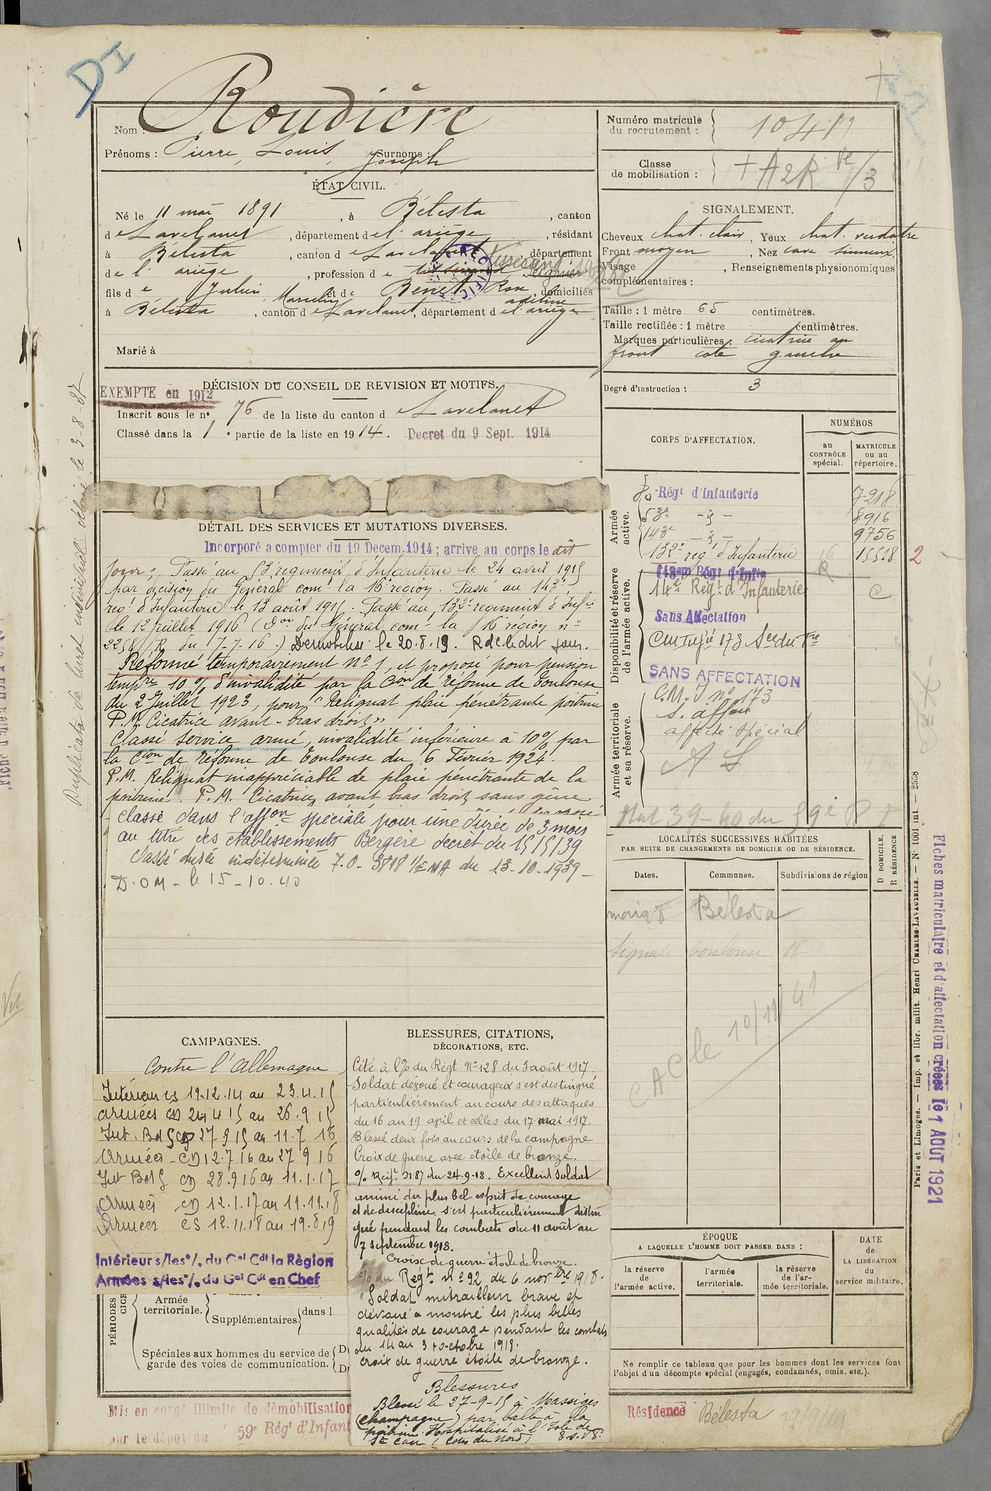 DI
Nom : Roudière
Prénoms : Pierre, Louis, Joseph Surnoms :
ÉTAT CIVIL.
Né le 11 mai 1891, à Bélesta, canton
de Lavelanet, département de l'ariège, résidant
à Bélesta, canton de Lavelanet, département
de l'ariège, profession de
fils de Julien Marcelin et de Benet Rose adeline domiciliés
à Bélesta, canton de Lavelanet, département de l'ariège
Marié à
Numéro matricule
du recrutement :
Classe
de mobilisation :
SIGNALEMENT.
Cheveux chat. clair, Yeux chat. verdâtre
Front moyen, Nez cave sinueux
Visage , Renseignements physionomiques
complémentaires :
Taille : 1 mètre 65 centimètres.
Taille rectifiée : 1 mètre centimètres.
Marques particulières : cicatrice au
front coté gauche
Degré d'instruction : 3
DÉCISION DU CONSEIL DE REVISION ET MOTIFS.
EXEMPTE en 1912
Inscrit sous le n° 76 de la liste du canton de Lavelanet
Classé dans la 1e partie de la liste en 1914. Decret du 9 Sept. 1914
DÉTAIL DES SERVICES ET MUTATIONS DIVERSES.
Incorporé a compter du 19 Decem. 1914; arrivé au corps le dit
jour; Passé au 53e régiment d'Infanterie le 24 avril 1915
par décision du Général comt la 16e région. Passé au 143e
reg' d'Infanterie le 13 août 1915. Passé au 132e regiment d'Infie
le 12 juillet 1916 (Don du Général comt la 16 région n°
2258/R du 17-7-16.) Démobilisé le 20.8.19. Rdc le dit jour.
Réformé temporairement N° 1, et proposé pour pension
tempre 10 % d'invalidité par la Cion de réforme de Toulouse
du 2 Juillet 1923, pour "Reliquat plaie pénétrante poitrine
P.M. Cicatrice avant-bras droit"
Classé service armé, invalidité inférieure à 10% par
la Cion de réforme de Toulouse du 6 Février 1924.
P.M. Reliquat inappréciable de plaie pénétrante de la
poitrine. P.M. Cicatrice avant bras droit sans gêne
classé dans l'affon spéciale pour une durée de 3 mois
au titre des établissements Bergère décret du 15/5/39
Classé durée indéterminée
D.O.M - le 15-10.40
CORPS D'AFFECTATION.
NUMÉROS
au
CONTRÔLE
spécial.
MATRICULE
ou au
répertoire.
Armée
active.
80e Régt d'Infanterie 7218
53e -"- 8916
143e -"- 9756
132e reg' d'Infanterie 15528
2
Disponibilité et réserve
de l'armée active.
14e Régt d'Infanterie C
Sans Affectation
SANS AFFECTATION
Armée territoriale
et sa réserve.
G.M. I n° 173
s. affon
affecté spécial
A S
LOCALITÉS SUCCESSIVES HABITÉES
PAR SUITE DE CHANGEMENTS DE DOMICILE OU DE RÉSIDENCE.
Dates.
Communes.
Subdivisions de région
D DOMICILE.
R RÉSIDENCE
Bélesta
CAC le 10/11/41
CAMPAGNES.
Contre l'Allemagne
Intérieur CS 19.12.14 au 23.4.15
Armées CD 24 4 15 au 26.9 15
Int. Bd G CD 27 9 15 au 11.7 16
Armées - CD 12.7 16 au 27 9 16
Int Bd G CD 28.9 16 au 11.1.17
Armées CD 12.1.17 au 11.11.18
Armées CS 12.11.18 au 19.8.19
Intérieur s/les °/. du Gal Cdt la Région
Armées s/les °/. du Gal Cdt en Chef
PÉRIODES
Armée
territoriale.
Supplémentaires
dans l
Spéciales aux hommes du service de
garde des voies de communication.
BLESSURES, CITATIONS,
DÉCORATIONS, ETC.
Cité à l'O du Régt N° 128 du 3 août 1917
Soldat dévoué et courageux s'est distingué
particulièrement au cours des attaques
du 16 au 19 avril et celles du 17 mai 1917.
Blessé deux fois au cours de la campagne
Croix de guerre avec étoile de bronze.
O/ Regt N 87 du 24.9.18. Excellent soldat
animé du plus bel esprit de courage
et de discipline s'est particulièrement distin
gué pendant les combats du 11 août au
7 septembre 1918.
Croix de guerre étoile de bronze.
Regt N° 92 du 6 novbre 1918.
"Soldat mitrailleur brave et
dévoué a montré les plus belles
qualités de courage pendant les combats
du 14 au 3 octobre 1918.
croix de guerre étoile de bronze.
Blessures
Blessé le 27-9-15 à Massiges
(Champagne) par balle à la
poitrine. Hospitalisé à
St Cast (Côtes du Nord)
ÉPOQUE
A LAQUELLE L'HOMME DOIT PASSER DANS :
DATE
de
LA LIBÉRATION
du
service militaire.
la réserve
de
l'armée active.
l'armée
territoriale.
la réserve
de l'ar-
mée territoriale.
Ne remplir ce tableau que pour les hommes dont les services font
l'objet d'un décompte spécial (engagés, condamnés, omis, etc.).
Mis en congé illimité de démobilisation
par le dépôt du 59e Régt d'Infant
Résidence Bélesta
Duplicata de livret individuel délivré le 3-8-37
Paris et Limoges. — Imp. et libr. milit. Henri CHARLES-LAVAUZELLE. — N° 1001 int. — 2558
Fiches matriculaire et d'affectation créées le 1 AOUT 1921